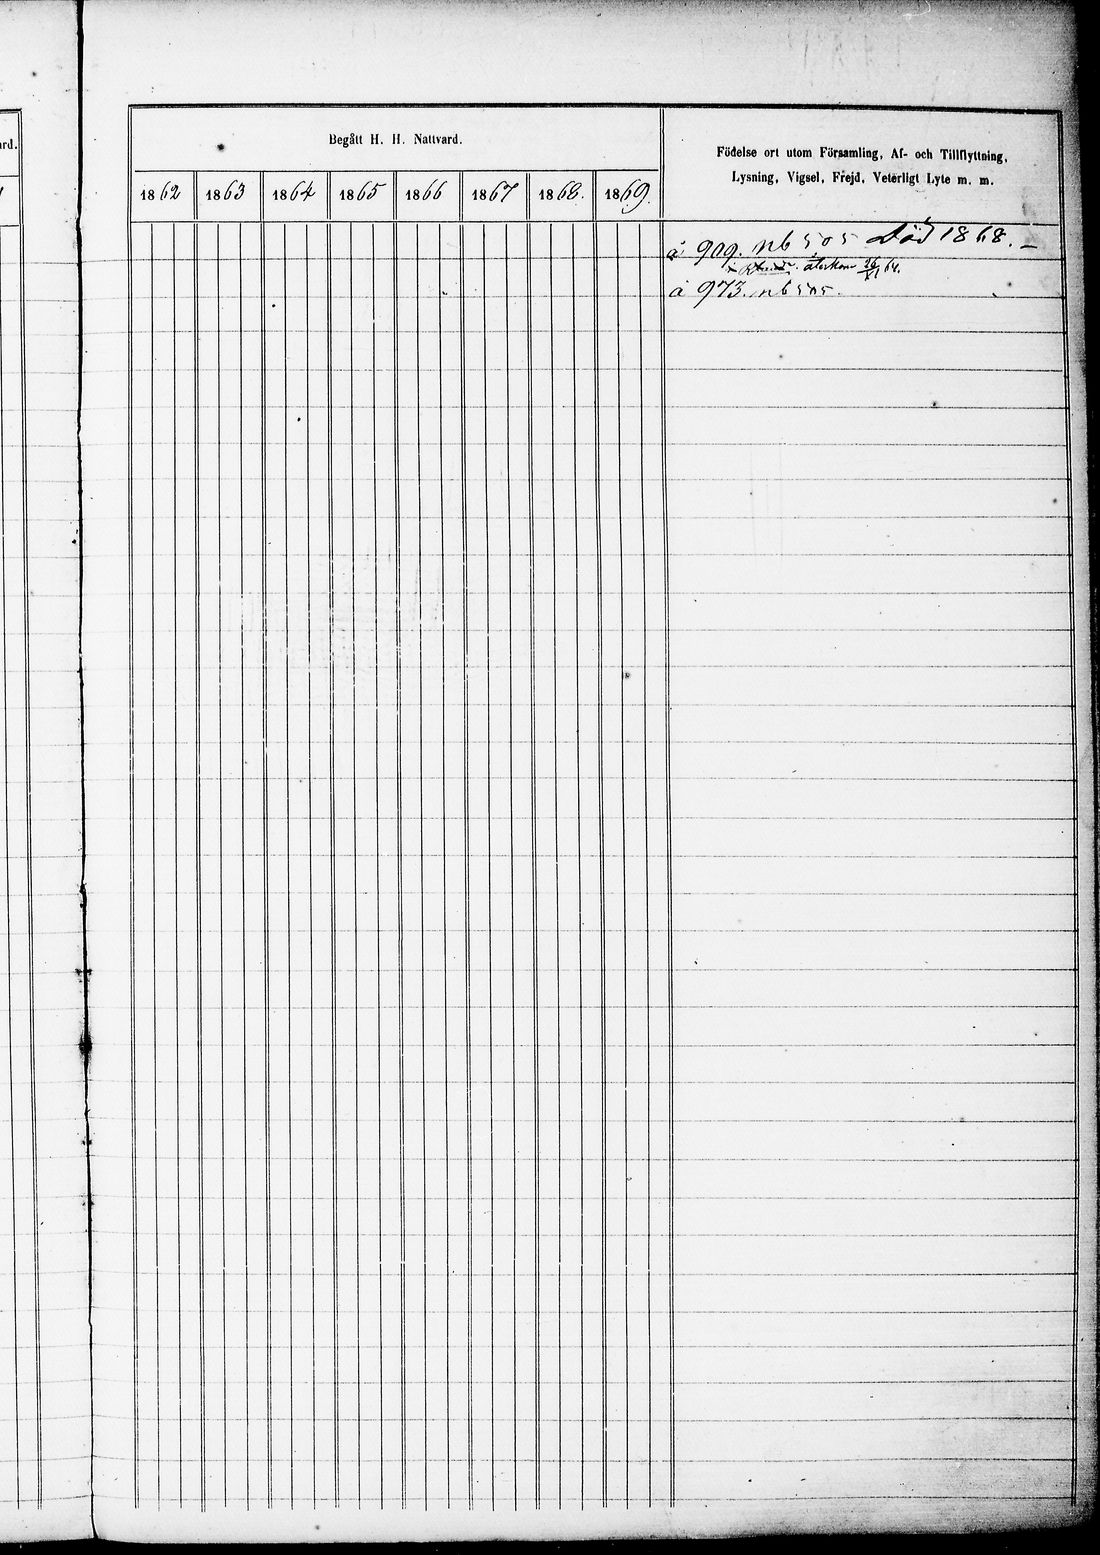 ard.
Begått H. H. Nattvard.
Födelse ort utom Församling, Af- och Tillflyttning,
Lysning, Vigsel, Frejd, Veterligt Lyte m. m.
1862 1863 1864 1865 1866 1867 1868. 1869.
å 909. nb 505 Död 1868. –
återkom 26/XI 64.
å 973. nb 505.